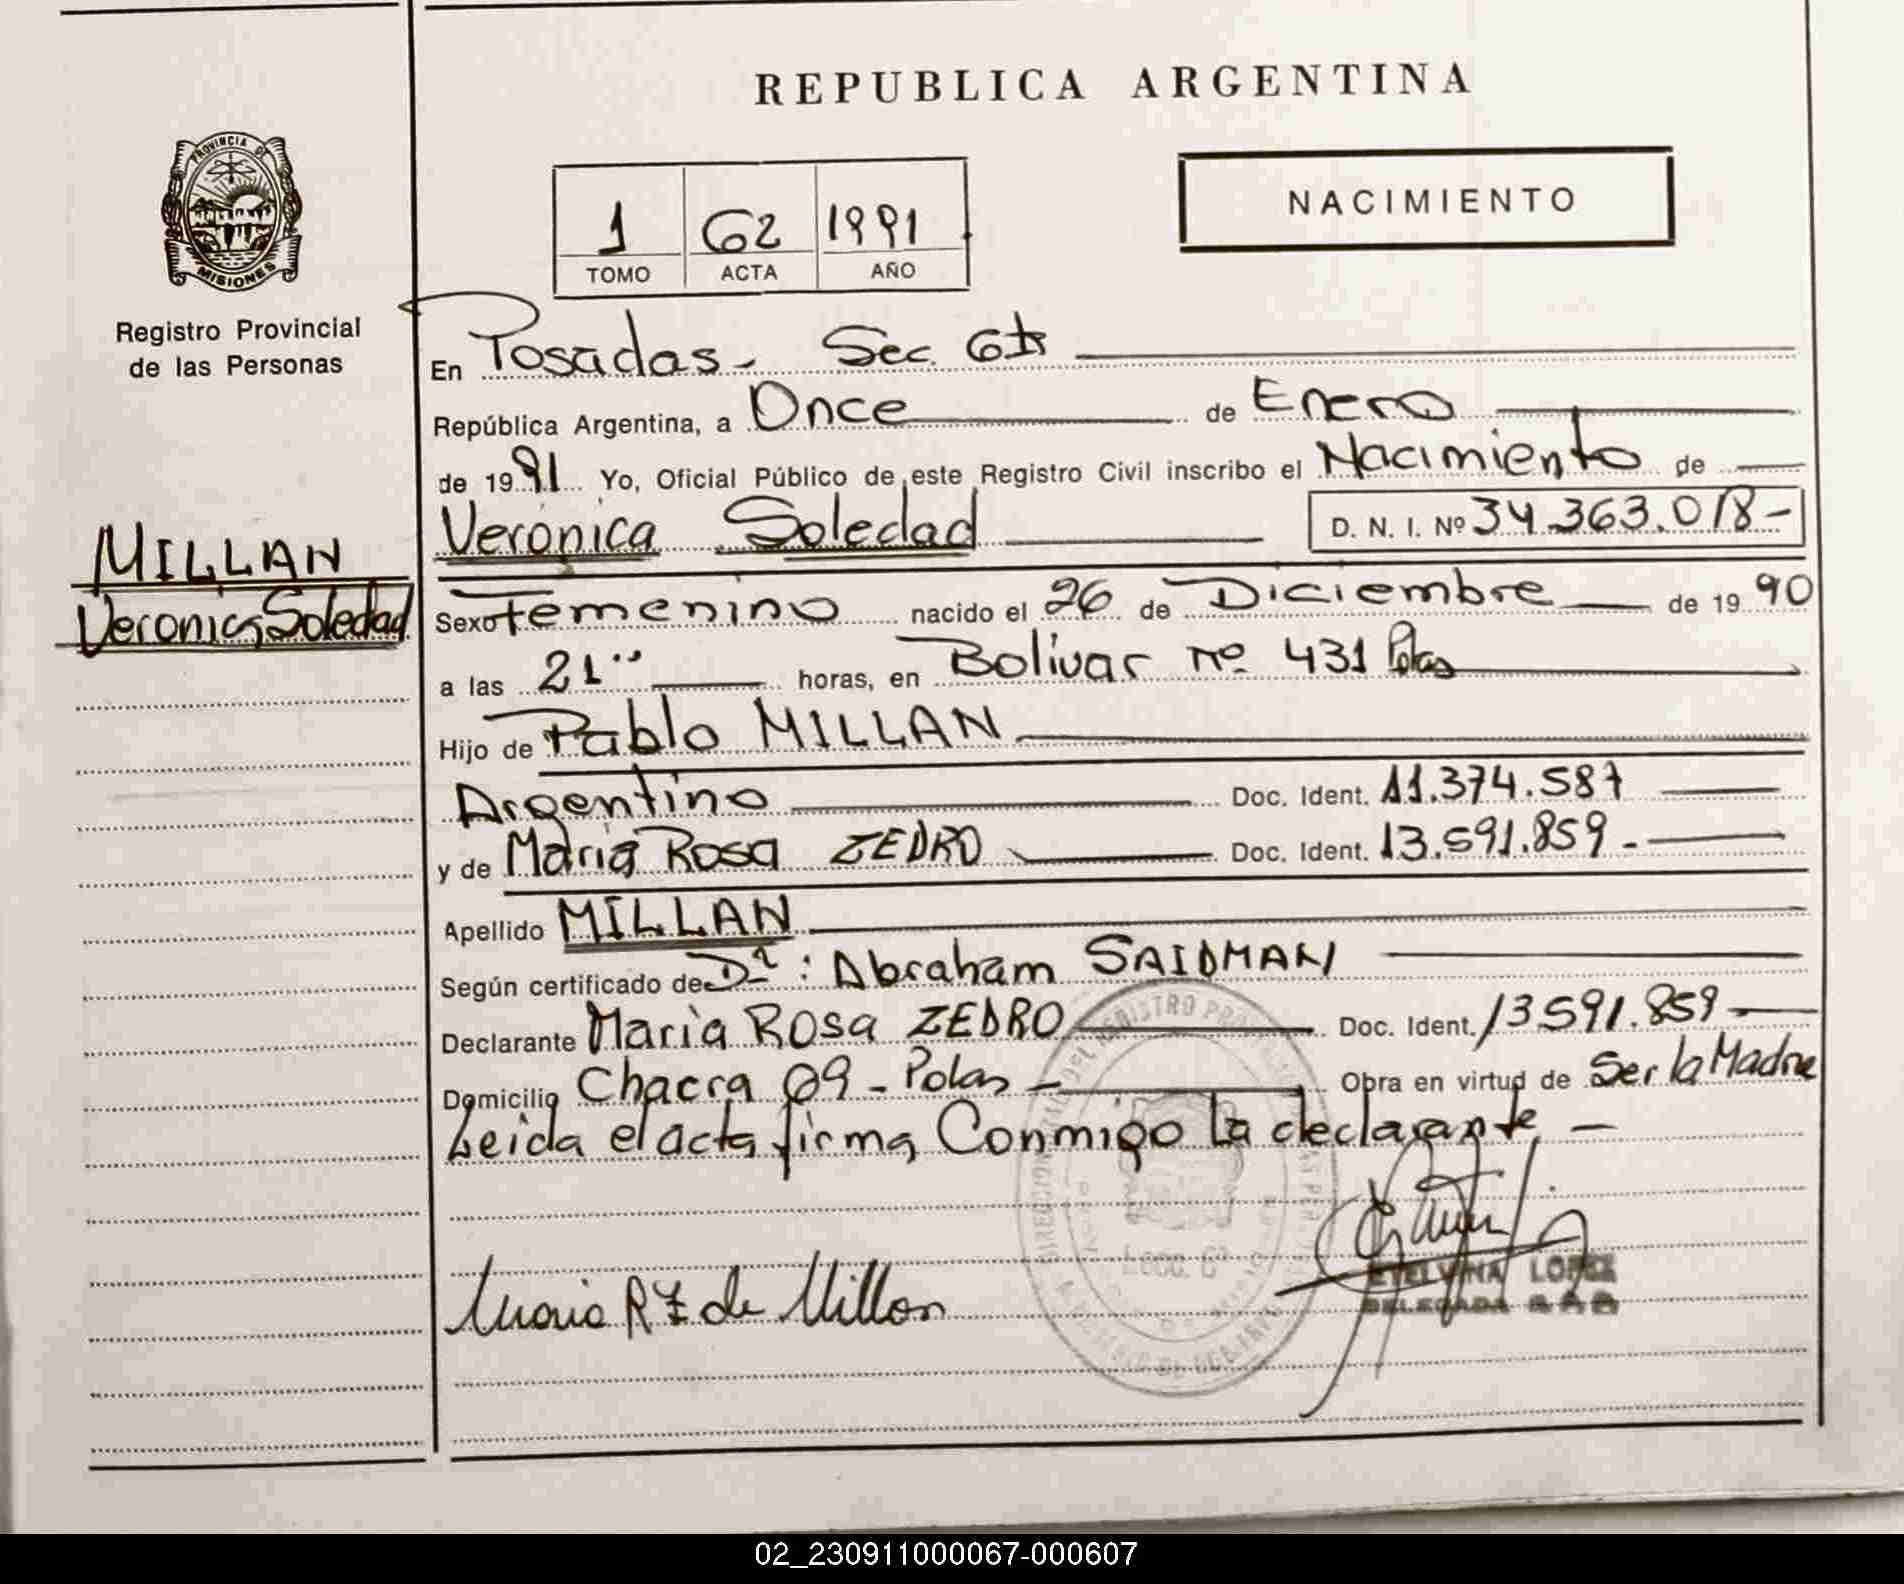 REPUBLICA ARGENTINA
PROVINCIA DE
MISIONES
Registro Provincial
de las Personas
1 62 1991
TOMO ACTA AÑO
NACIMIENTO
En Posadas - Sec. 6ta
República Argentina, a Once de Enero
de 1991 Yo, Oficial Público de este Registro Civil inscribo el Nacimiento de
Verónica Soledad D. N. I. Nº 34.363.018-
MILLAN
Veronica Soledad
Sexo Femenino nacido el 26 de Diciembre de 1990
a las 21 horas, en Bolivar nº 431 Pdas
Hijo de Pablo MILLAN
Argentino Doc. Ident. 11.374.587
y de Maria Rosa ZEDRO Doc. Ident. 13.591.859-
Apellido MILLAN
Según certificado de Dr: Abraham SAIDMAN
Declarante Maria Rosa ZEDRO Doc. Ident. 13591.859
Domicilio Chacra 09 - Pdas - Obra en virtud de Ser la Madre
Leida el acta firma Conmigo la declarante -
Maria R Z de Millan
ETELVINA LOPEZ
DELEGADA
02_230911000067-000607